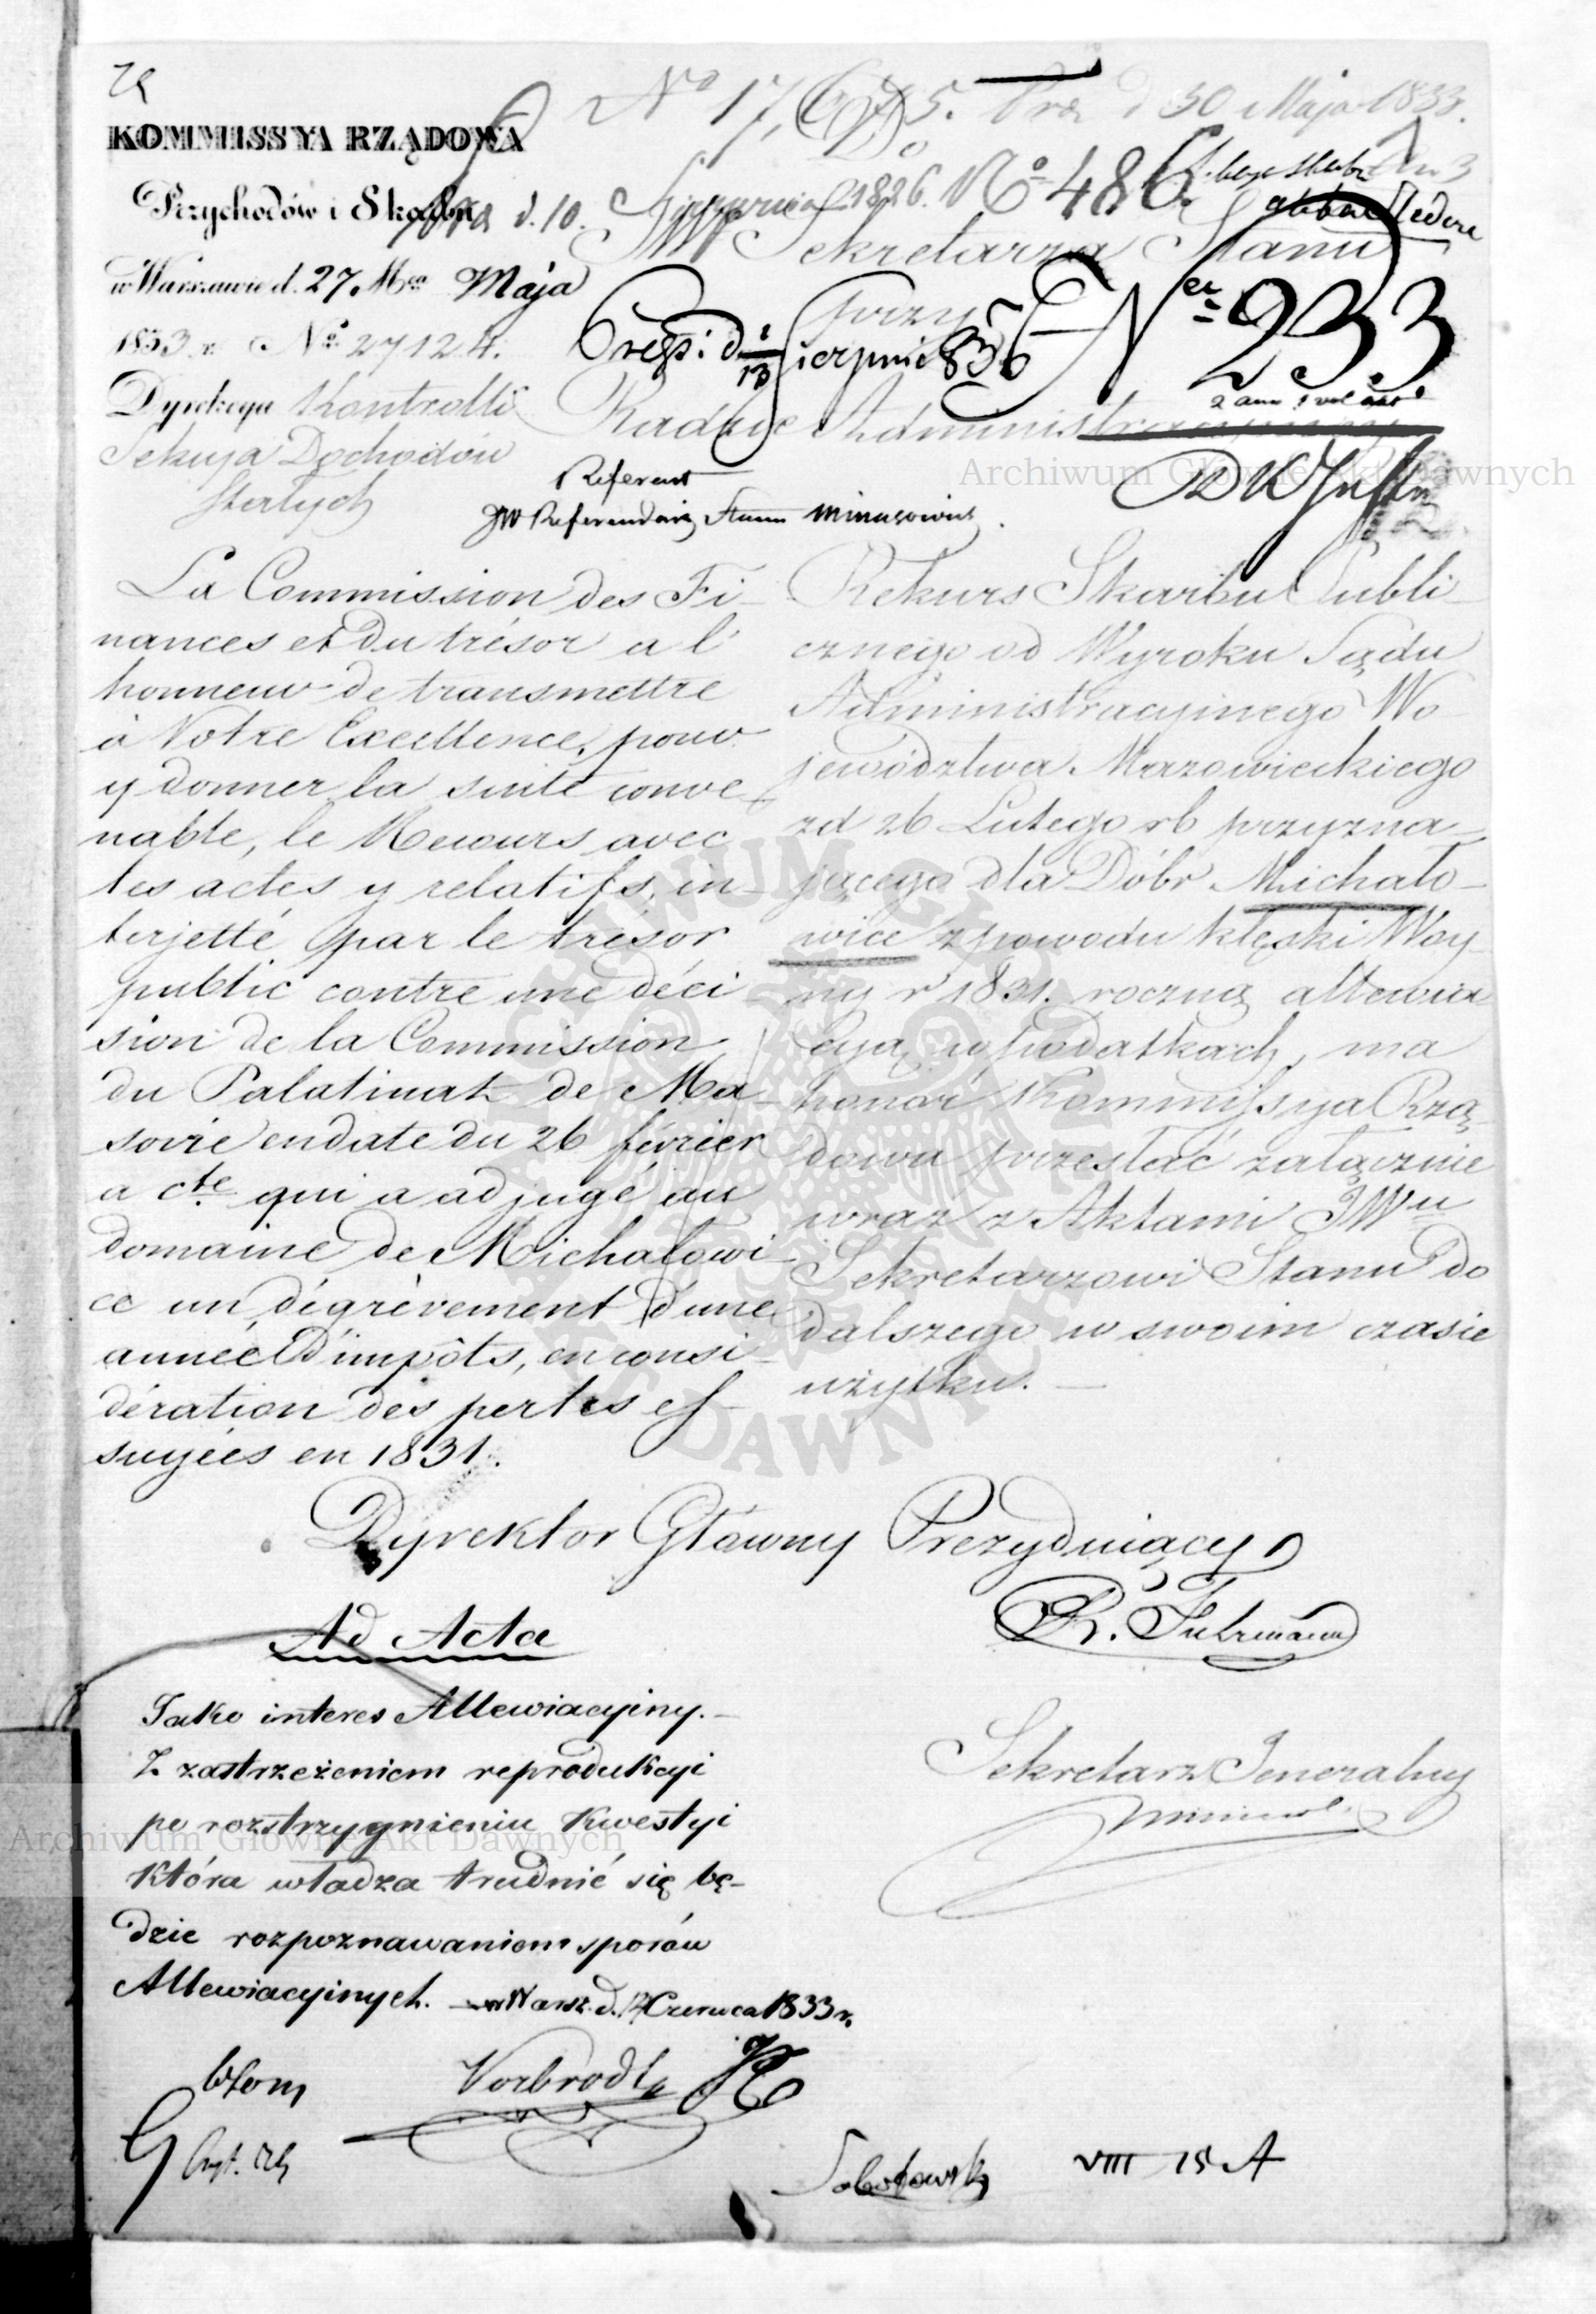 KOMMISSYA RZĄDOWA
Przychodów i Skarbu
w Warszawie d. 27 Mca Maja
1833 r. No 27124.
Dyrekcya Kontrolli
Sekcya Dochodów
Stałych
No 17, 30 Maja 1833.
d. 10. 1826. No 486.
Do
Sekretarza Stanu
przy
Ner 233
Radzie Administracyjney
Referent
JW Referendarz Stanu Minasowicz
La Commission des Fi-
nances et du trésor a l'
honneur de transmettre
à Votre Excellence, pour
y donner la suite conve-
nable, le Recours avec
les actes y relatifs, in-
terjetté par le trésor
public contre une déci-
sion de la Commission
du Palatinat de Ma-
sovie en date du 26 février
a cte qui a adjugé au
domaine de Michałowi-
ce un dégrèvement d'une
année d'impôts, en consi-
dération des pertes es-
suyées en 1831.
Rekurs Skarbu Publi-
cznego od Wyroku Sądu
Administracyjnego Wo-
jewództwa Mazowieckiego
zd 26 Lutego rb przyzna-
jącego dla Dóbr Michało-
wice z powodu klęski Woy-
ny r 1831. roczną allewia-
cyą w podatkach, ma
honor Kommissya Rzą-
dowa przesłać załącznie
wraz z Aktami JWu
Sekretarzowi Stanu do
dalszego w swoim czasie
użytku. —
Dyrektor Główny Prezyduiący
R. Fuhrmann
Ad Acta
Jako interes Allewiacyiny. —
Z zastrzeżeniem reprodukcyi
po rozstrzygnieniu Kwestyi
która władza trudnić się bę-
dzie rozpoznawaniem sporów
Allewiacyinych. — w Warsz. d. 12 Czerwca 1833 r.
Sekretarz Jeneralny
Vorbrodt
VIII 15 A
Archiwum Główne Akt Dawnych
Archiwum Główne Akt Dawnych
ARCHIWUM GŁÓWNE AKT DAWNYCH